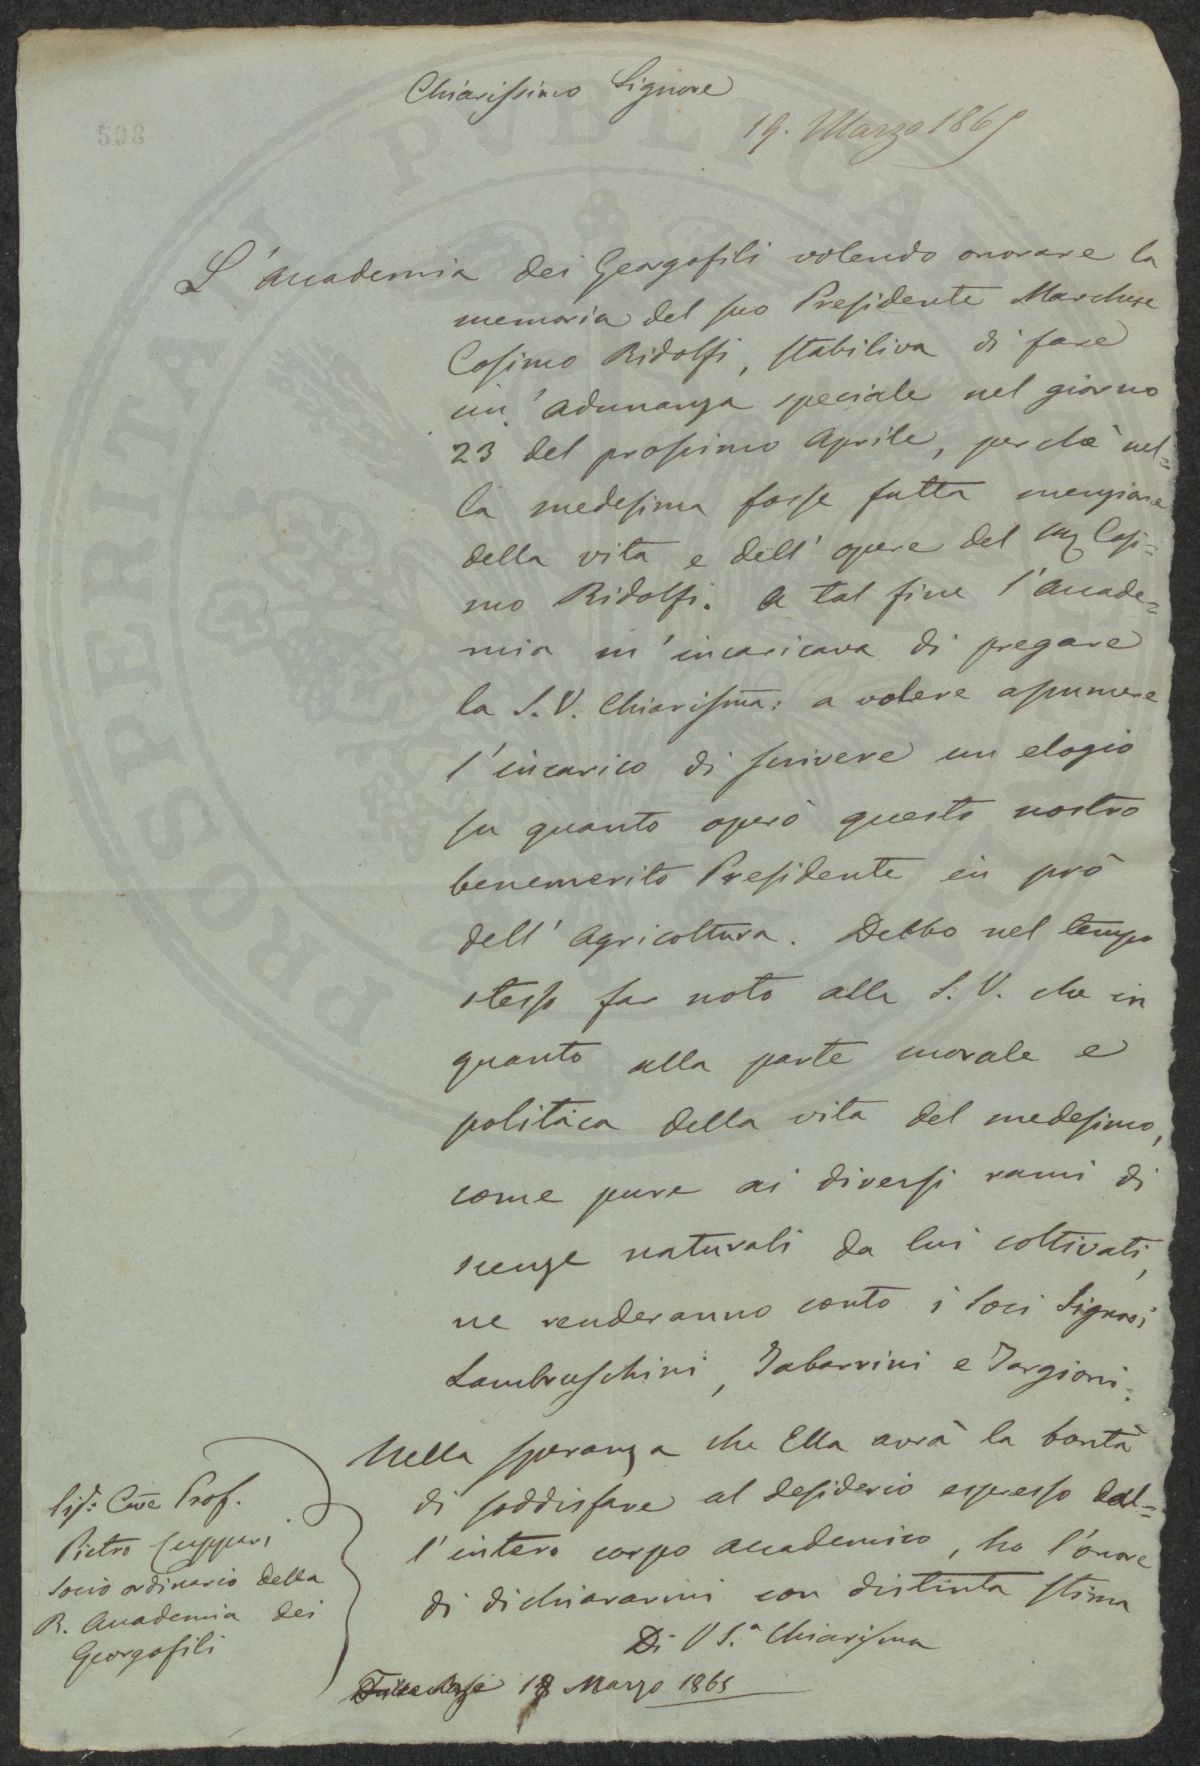 Chiarissimo Signore
19. Marzo 1865
598
L'Accademia dei Georgofili volendo onorare la
memoria del suo Presidente Marchese
Cosimo Ridolfi, stabiliva di fare
un'adunanza speciale nel giorno
23 del prossimo Aprile, perchè nel=
la medesima fosse fatta menzione
della vita e dell'opere del Cosi=
mo Ridolfi. A tal fine l'Accade=
mia m'incaricava di pregare
la S. V. Chiarissma: a volere assumere
l'incarico di scrivere un elogio
su quanto operò questo nostro
benemerito Presidente in prò
dell'Agricoltura. Debbo nel tempo
stesso far noto alla S. V. che in
quanto alla parte morale e
politica della vita del medesimo,
come pure ai diversi rami di
scenze naturali da lui coltivati,
ne renderanno conto i Soci Signori
Lambruschini, Tabarrini e Targioni.
Nella speranza che Ella avrà la bontà
di soddisfare al desiderio espresso dal=
l'intero corpo accademico, ho l'onore
di dichiararmi con distinta stima
Di V S.a Chiarissma
18 Marzo 1865
Sig: Cave Prof.
Pietro Cuppari
Socio ordinario della
R. Accademia dei
Georgofili
PROSPERITATI PUBLICAE